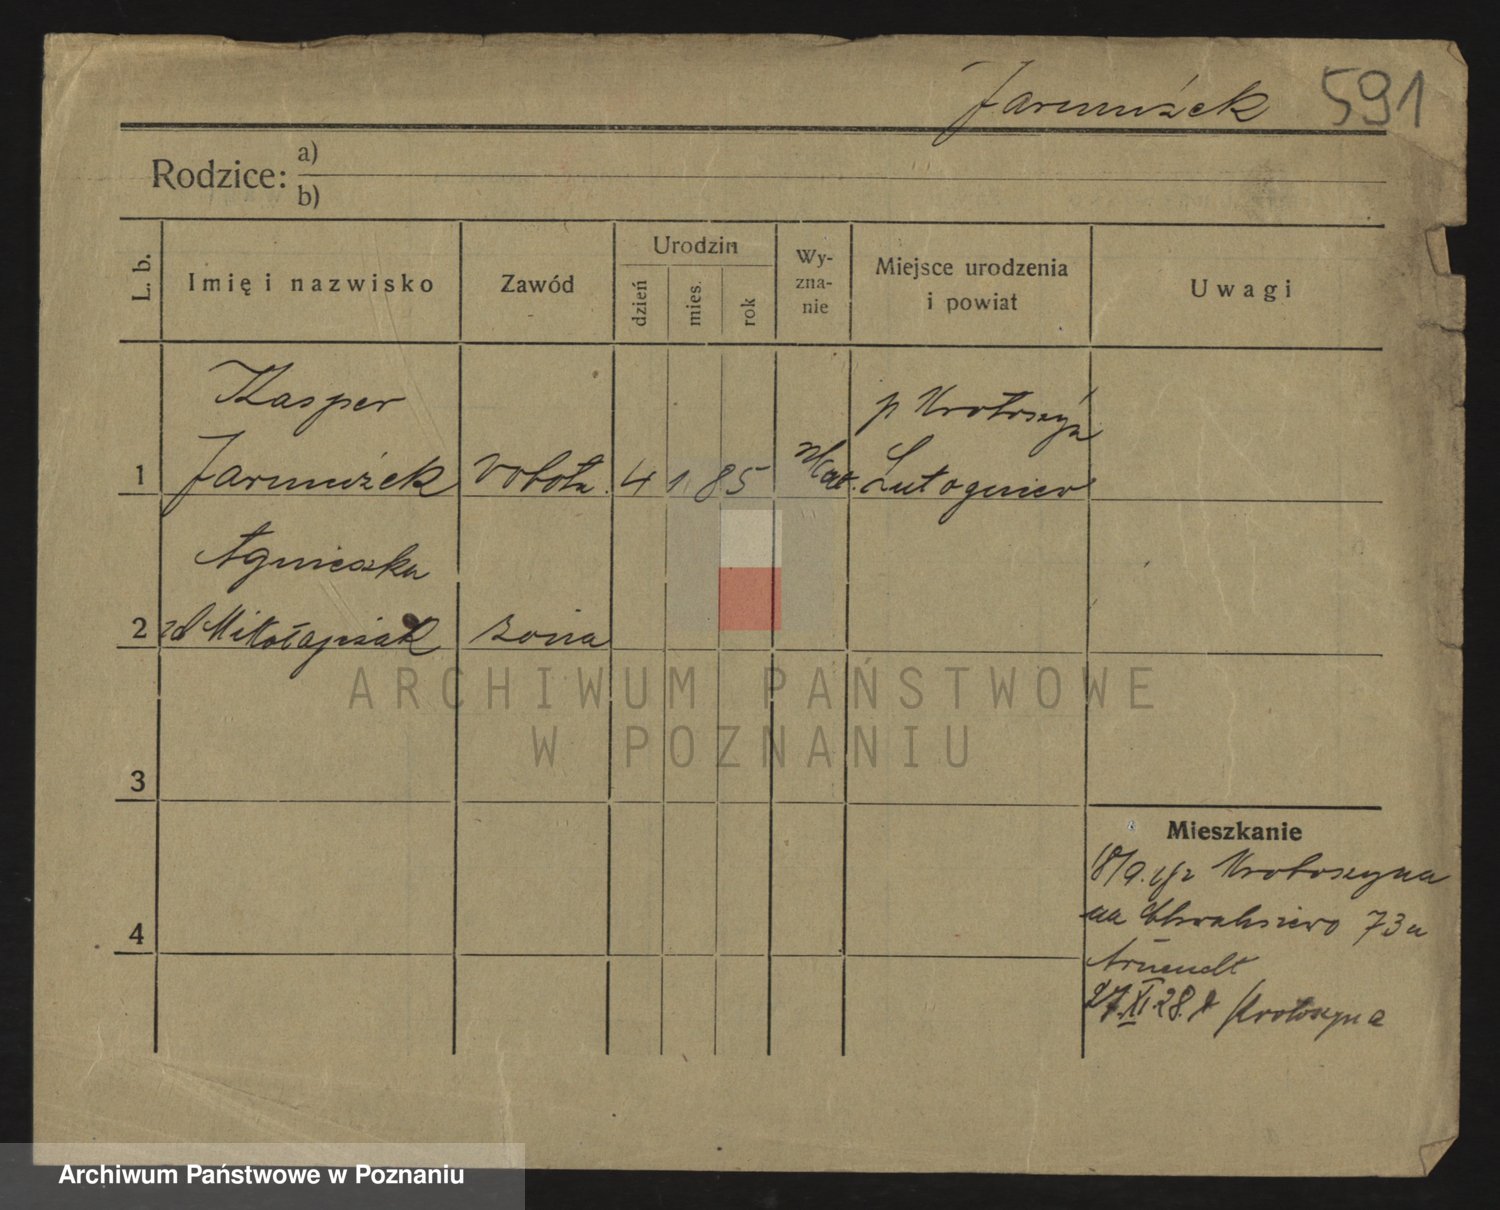 Jarmużek 591
Rodzice: a)
b)
L. b.
Imię i nazwisko
Zawód
Urodzin
dzień
mies.
rok
Wy-
zna-
nie
Miejsce urodzenia
i powiat
Uwagi
Kasper
p Krotoszyn
1 Jarmużek robotn. 4 1 85 kat. Lutogniew
Agnieszka
2 zd Mikołajczak żona
ARCHIWUM PAŃSTWOWE
W POZNANIU
3
Mieszkanie
18/9. z Krotoszyna
na Chwaliszewo 73 u
4
27.XI.28. Krotoszyna
Archiwum Państwowe w Poznaniu